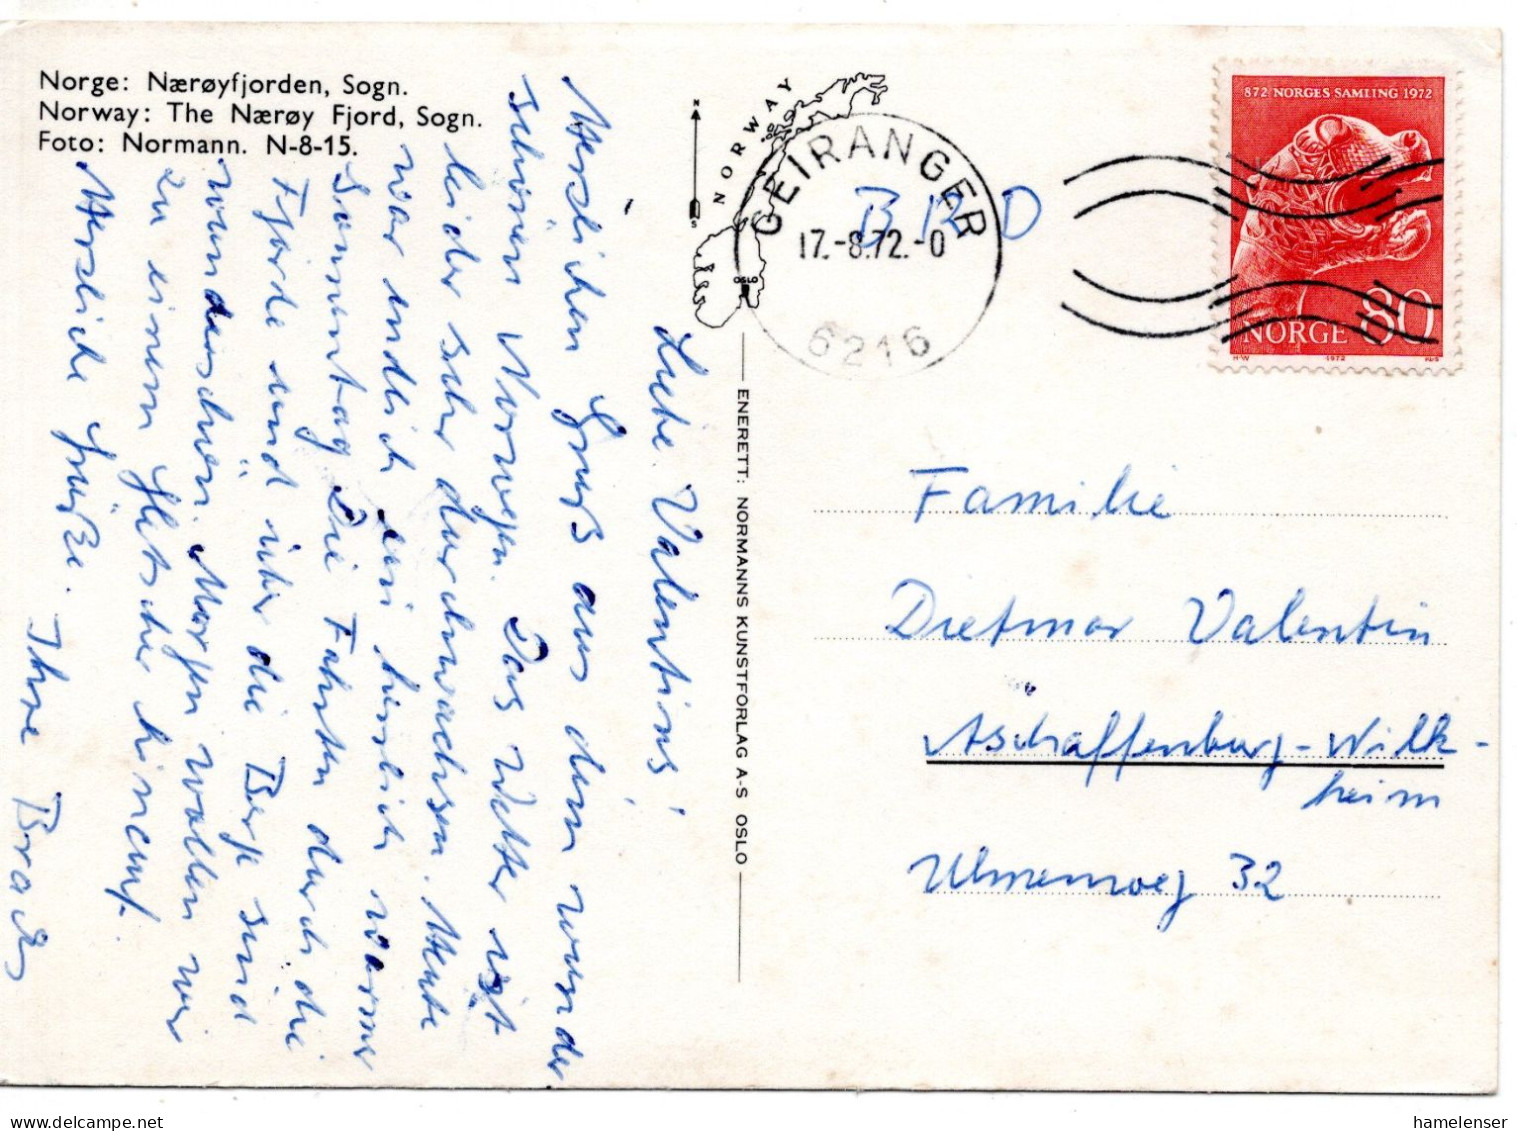 Norge: Nærøyfjorden, Sogn.
Norway: The Nærøy Fjord, Sogn.
Foto: Normann. N-8-15.
Liebe Valentins!
Herzlichen Gruß aus dem wunder
schönen Norwegen. Das Wetter ist
leider sehr durchwachsen. Heute
war endlich ein herrlich warmer
Sommertag. Die Fahrten durch die
Fjorde und über die Berge sind
wunderschön. Morgen wollen wir
zu einem Gletscher hinauf.
Herzliche Grüße. Ihre
N
S
NORWAY
OSLO
ENERETT: NORMANNS KUNSTFORLAG A-S OSLO
GEIRANGER
17.-8.72.-0
6216
BRD
872 NORGES SAMLING 1972
NORGE 80
HW 1972
Familie
Dietmar Valentin
Aschaffenburg-Wilk-
heim
Ulmenweg 32
www.delcampe.net
hamelenser